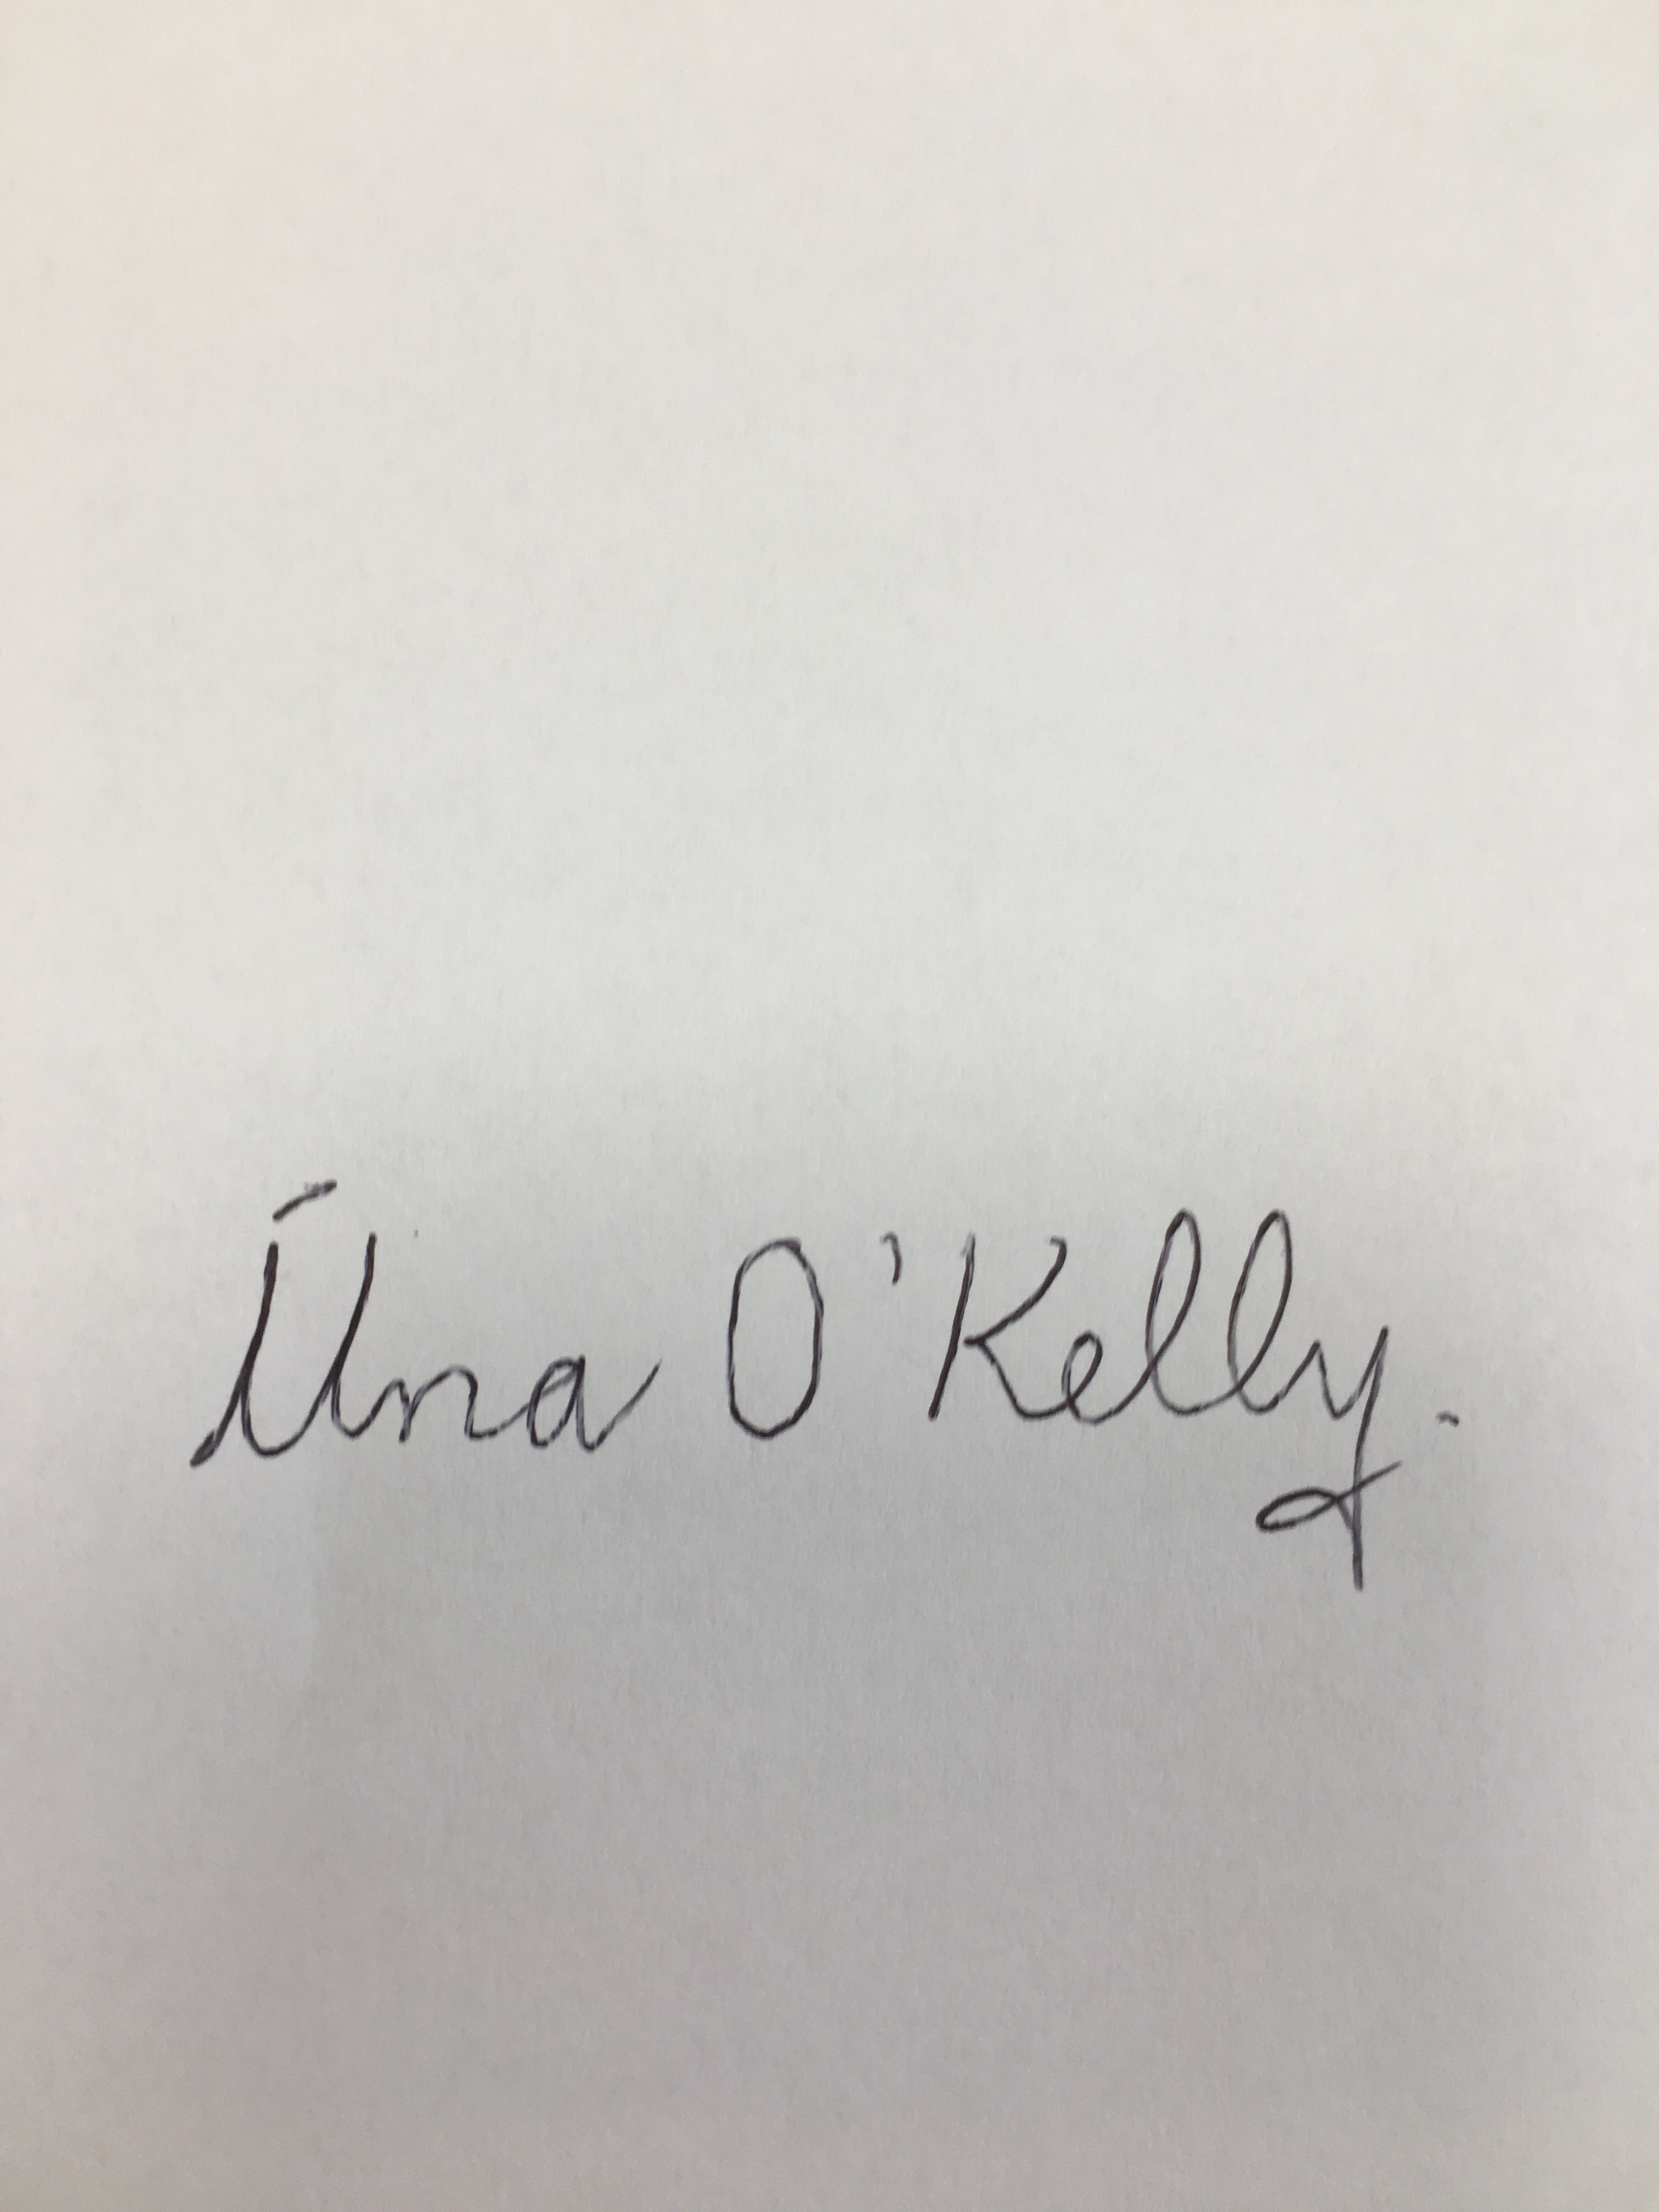 Úna O'Kelly.